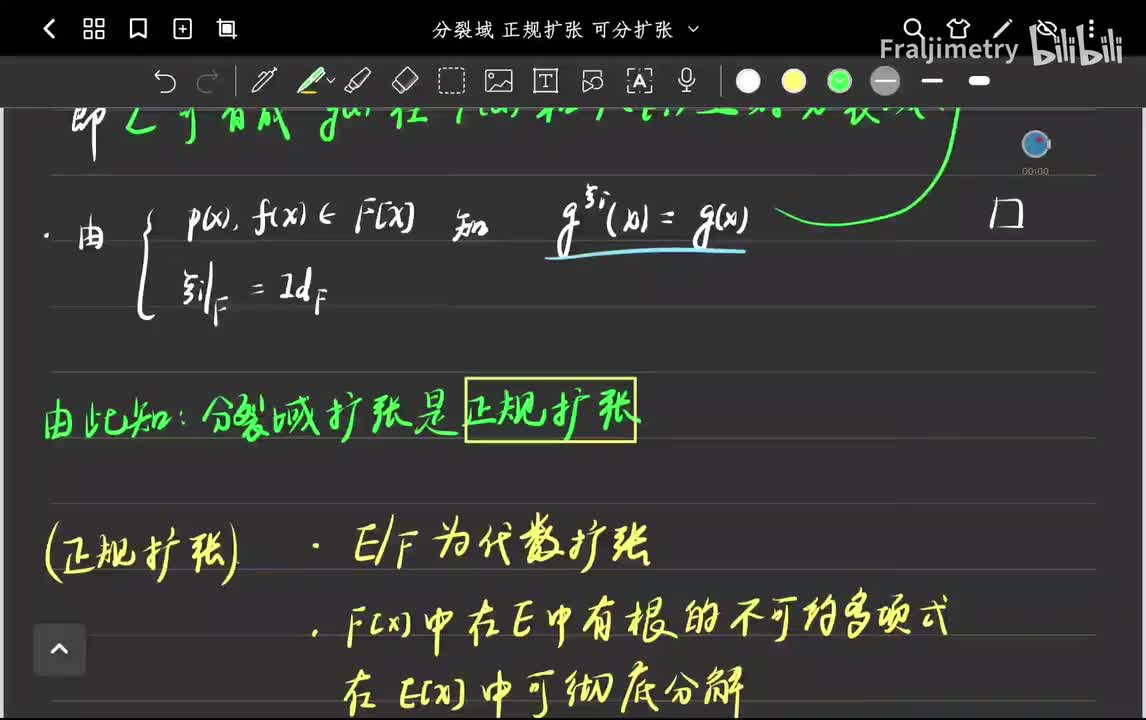 分裂域 正规扩张 可分扩张
Fraljimetry bilibili
00:00
即 L 可看成 g(x) 在
· 由 { p(x), f(x) ∈ F[X] 知 g^{ξi}(x) = g(x) □
ξi|_F = Id_F
由此知: 分裂域扩张是正规扩张
(正规扩张) · E/F 为代数扩张
· F[X] 中在 E 中有根的不可约多项式
在 E[X] 中可彻底分解